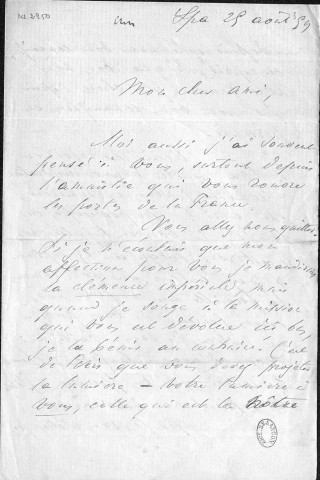 Spa 25 août 59
Mon cher ami,
Moi aussi j'ai souvent
pensé à vous, surtout depuis
l'amnistie qui vous rouvre
les portes de la France
Vous allez nous quitter.
Si je n'écoutais que mon
affection pour vous je maudirais
la clémence impériale, mais
quand je songe à la mission
qui vous est dévolue ici bas,
je la bénis au contraire. C'est
de Paris que vous devez projeter
la lumière – votre lumière à
vous, celle qui est la nôtre